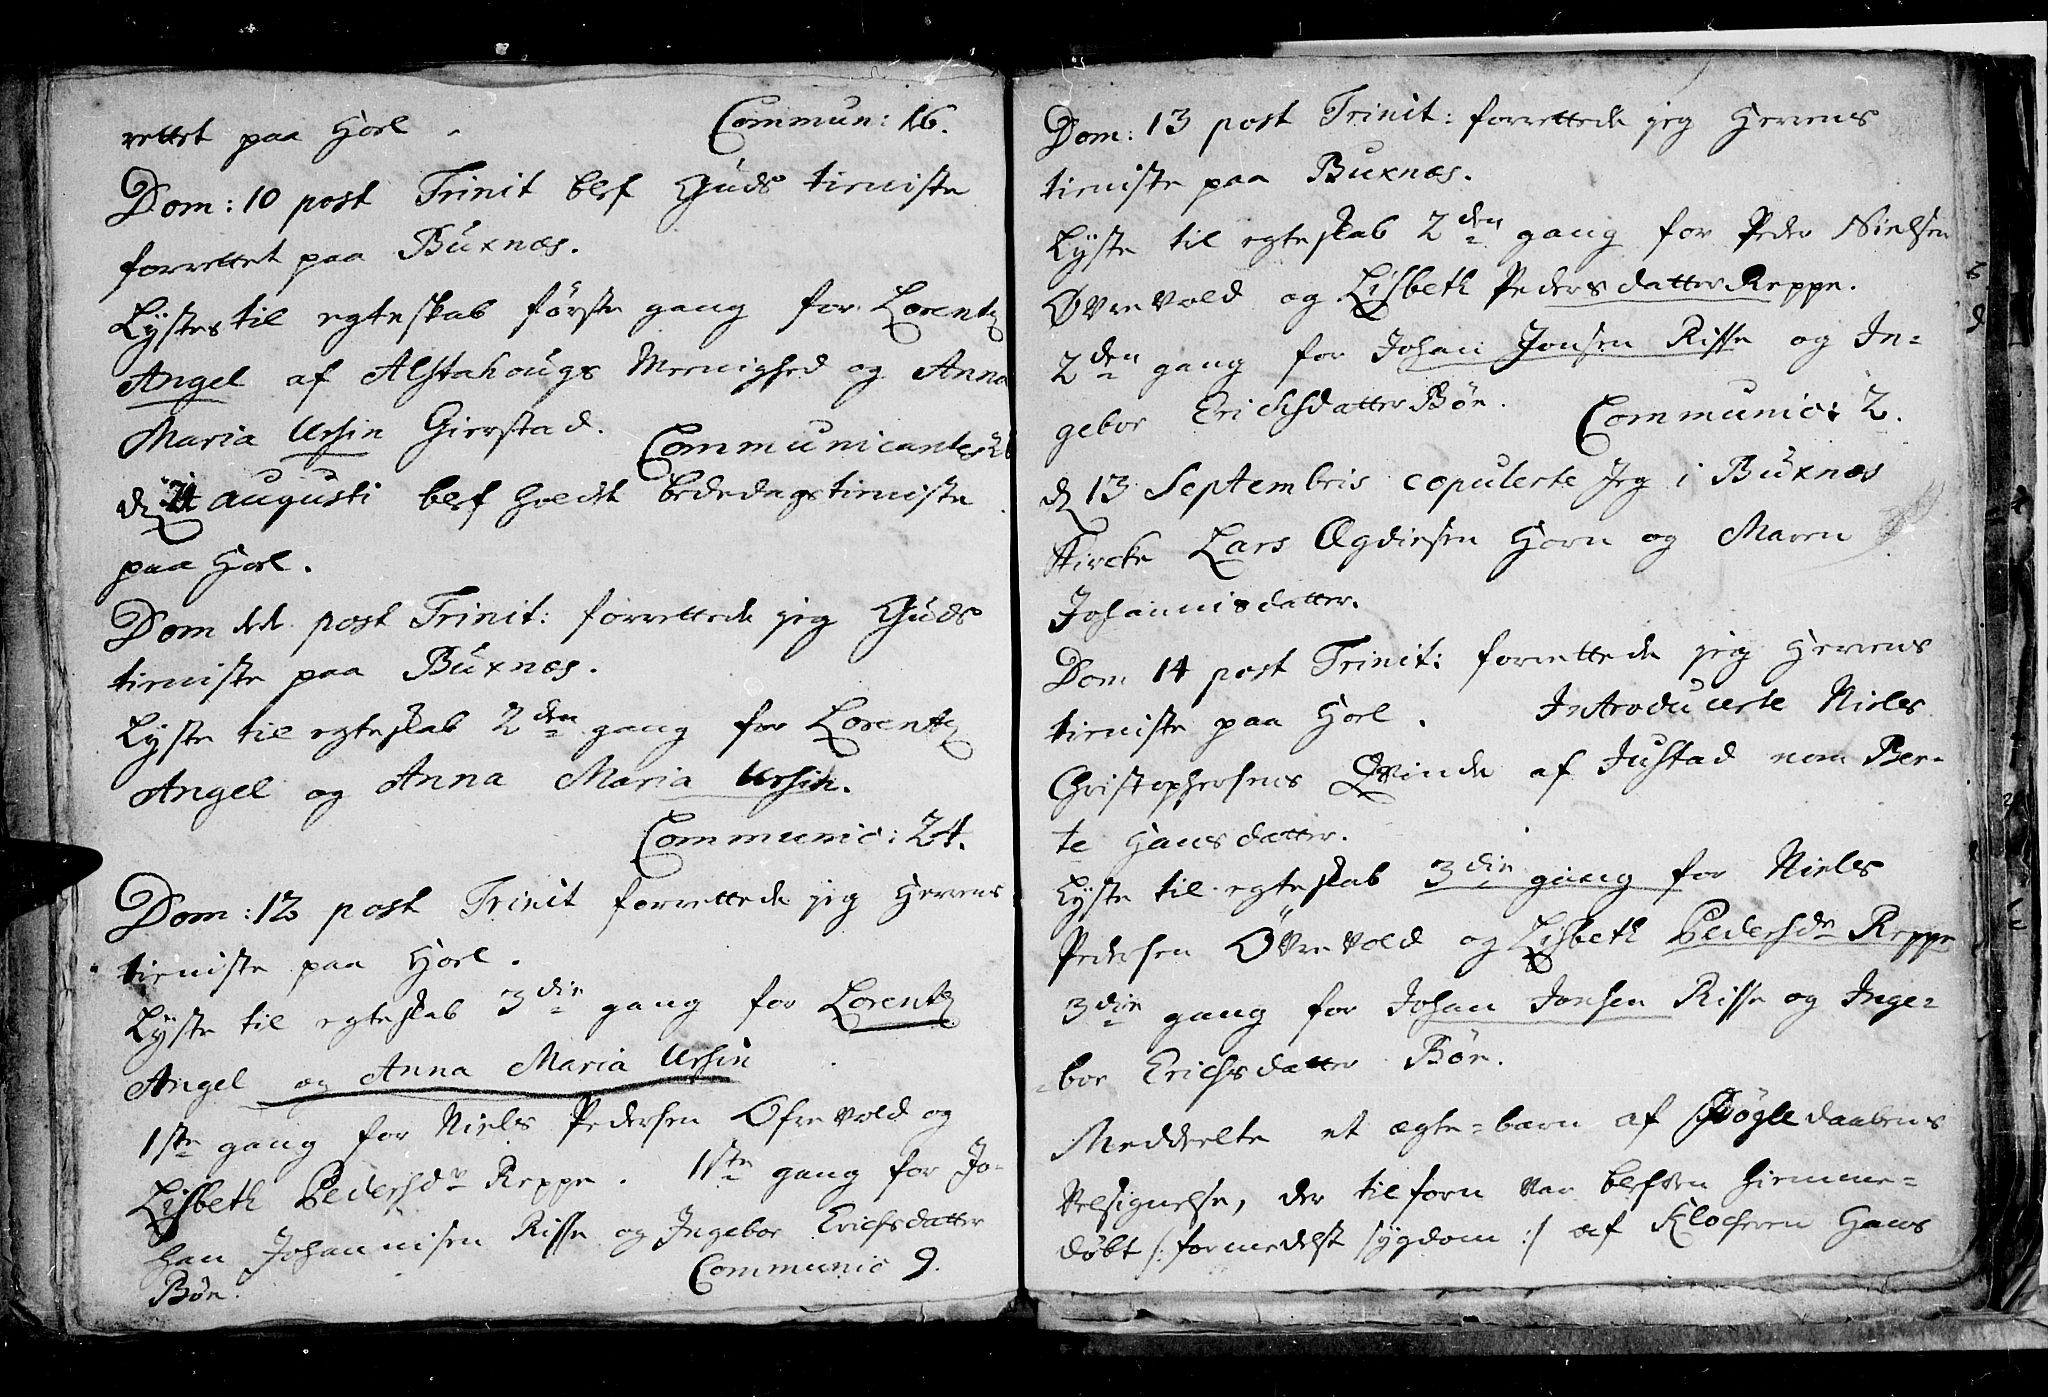 rettet paa Hoel. Commun: 16.
Dom: 10 post Trinit blef Guds tieniste
forrettet paa Buxnæs.
Lystes til egteskab første gang for Lorentz
Angel af Alstahougs Meenighed og Anna
Maria Ursin Gierstad. Communicantes
d. augusti blef holdt bededags tieniste
paa Hoel.
Dom 11. post Trinit: forrettede jeg Guds
tieniste paa Buxnæs.
Lyste til egteskab 2den gang for Lorentz
Angel og Anna Maria Ursin.
Communic: 24.
Dom: 12 post Trinit forrettede jeg Herrens
tieniste paa Hoel.
Lyste til egteskab 3die gang for Lorentz
Angel og Anna Maria Ursin
1ste gang for Niels Pedersen Ofrevold og
Lisbeth Pedersdr Reppe. 1ste gang for Jo-
han Johannisen Risse og Ingebor Erichsdatter
Bøe. Communic 9.
Dom: 13 post Trinit: forrettede jeg Herrens
tieniste paa Buxnæs.
Lyste til egteskab 2den gang for Peder Nielsen
Øvrevold og Lisbeth Pedersdatter Reppe.
2den gang for Johan Jonsen Risse og In-
gebor Erichsdatter Bøe. Communic: 2.
d 13 Septembris copulerte Jeg i Buxnæs
Kircke Lars Ogdiesen Horn og Maren
Johannisdatter.
Dom 14 post Trinit: forrettede jeg Herrens
tieniste paa Hoel. Introducerte Niels
Christophersens Qvinde af Justad nom Ber-
te Hansdatter.
Lyste til egteskab 3die gang for Niels
Pedersen Øvrevold og Lisbeth Pedersdr Reppe
3die gang for Johan Jonsen Risse og Inge-
-bor Erichsdatter Bøe.
Meddeelte et ægte-barn af daabens
Velsignelse, der tilforn var blefven hiemme-
døbt /: formedelst sygdom :/ af Klocheren Hans